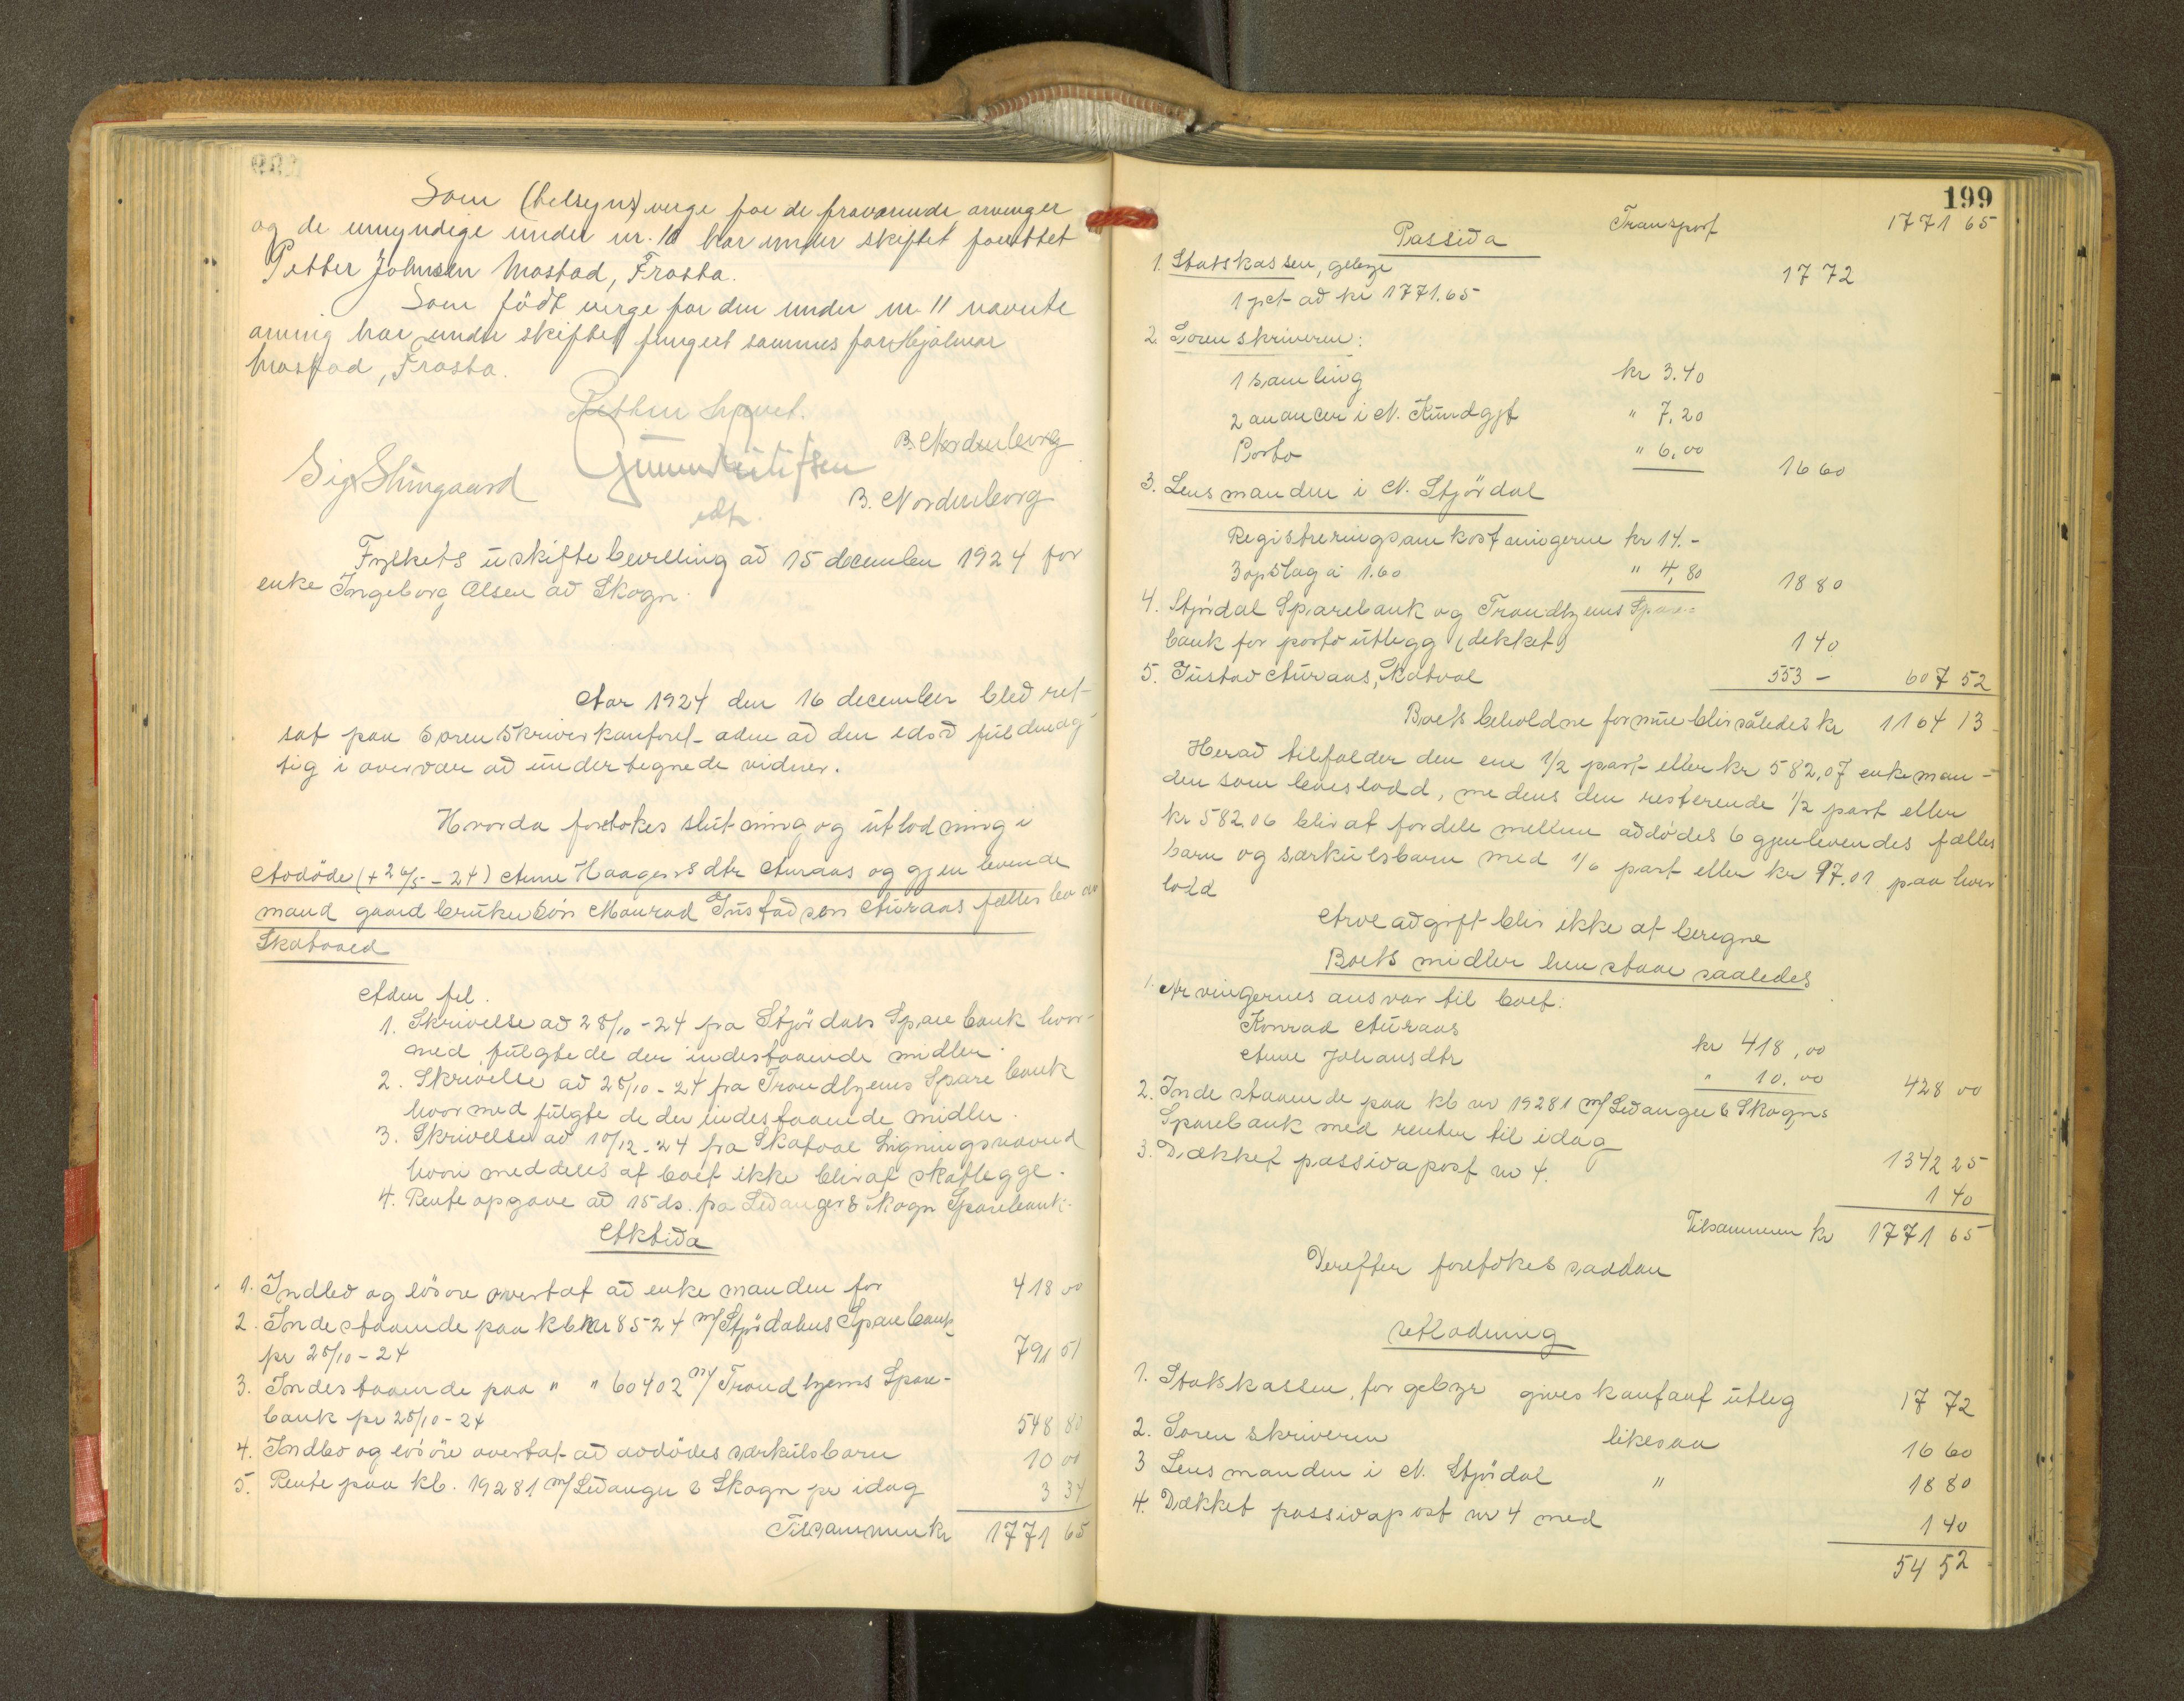 Som (tilsyns) verge for de fraværende arvinger
og de umyndige under nr. 10 har under skiftet
Petter Johnsen Mostad, Frosta.
Som født verge for den under nr. 11 nævnte
arving har under skiftet fungert sammes far Hjalmar
Mostad, Frosta.
Retten hævet.
B. Nordenborg
Sig. Stungaard
B. Nordenborg
edf.
Fylkets uskiftebevilling av 15 december 1924 for
enke Ingeborg Olsen av Skogn.
Aar 1924 den 16 december blev ret
sat paa Sorenskriverkontoret aden av den edsv fuldmæg-
tig i overvær av undertegnede vidner.
Hvorda foretokes slutning og utlodning i
Avdöde (+ 26/5 - 24) Anne Haagensdtr Auraas og gjenlevende
mand gaardbruker Monrad Gustavsen Auraas fælles bo av
Skatvaed
Aden fel.
1. Skrivelse av 28/10 - 24 fra Stjördals Sparebank hvor-
med fulgte de der indestaaende midler.
2. Skrivelse av 28/10 - 24 fra Trondhjems Sparebank
hvormed fulgte de der indestaaende midler.
3. Skrivelse av 10/12 - 24 fra Skatval Ligningsnævnd
hvori meddeles at boet ikke blir at skatlegge.
4. Renteopgave av 15 ds. fra Levanger & Skogn Sparebank.
Aktiva
1. Indbo og lösöre overtat av enkemanden for 418 00
2. Indestaaende paa kb nr 8524 m/ Stjördalens Sparebank
pr 28/10 - 24 791 51
3. Indestaaende paa " " 60402 m/ Trondhjems Spare-
bank pr 28/10 - 24 548 80
4. Indbo og lösöre overtat av avdödes særkulsbarn 10 00
5. Rente paa kb. 19281 m/ Levanger & Skogn pr idag 3 34
Tilsammen kr 1771 65
199
Passiva Transport 1771 65
1. Statskassen, gebyr
1 pct av kr 1771.65 17 72
2. Sorenskriveren:
1 samling kr 3.40
2 anoncer i N. Kundgjf " 7,20
Porto " 6,00 16 60
3. Lensmanden i N. Stjördal
Registreringsomkostningerne kr 14.-
3 opslag a 1.60 " 4,80 18 80
4. Stjördal Sparebank og Trondhjems Spare-
bank for porto utlegg (dekket) 1 40
5. Gustav Auraas, Skatval 553 - 607 52
Boets beholdne formue blir således kr 1164 13
Herav tilfalder den ene 1/2 part eller kr 582,07 enkeman-
den som boeslodd, medens den resterende 1/2 part eller
kr 582.06 blir at fordele mellem avdödes 6 gjenlevendes fælles
barn og særkulsbarn med 1/6 part eller kr 97.01 paa hver
lodd
Arveavgift blir ikke at beregne
Boets midler henstaar saaledes
1. Arvingernes ansvar til boet:
Konrad Auraas kr 418,00
Anne Johansdtr " 10.00 428 00
2. Indestaaende paa kb nr 19281 m/ Levanger & Skogns
Sparebank med renter til idag 1342 25
3. Dækket passivapost nr 4. 1 40
Tilsammen kr 1771 65
Derefter foretokes saadan
utlodning
1. Statskassen, for gebyr gives kontant utleg 17 72
2. Sorenskriveren likesaa 16 60
3 Lensmanden i N. Stjördal " 18 80
4. Dækket passivapost nr 4 med 1 40
54 52